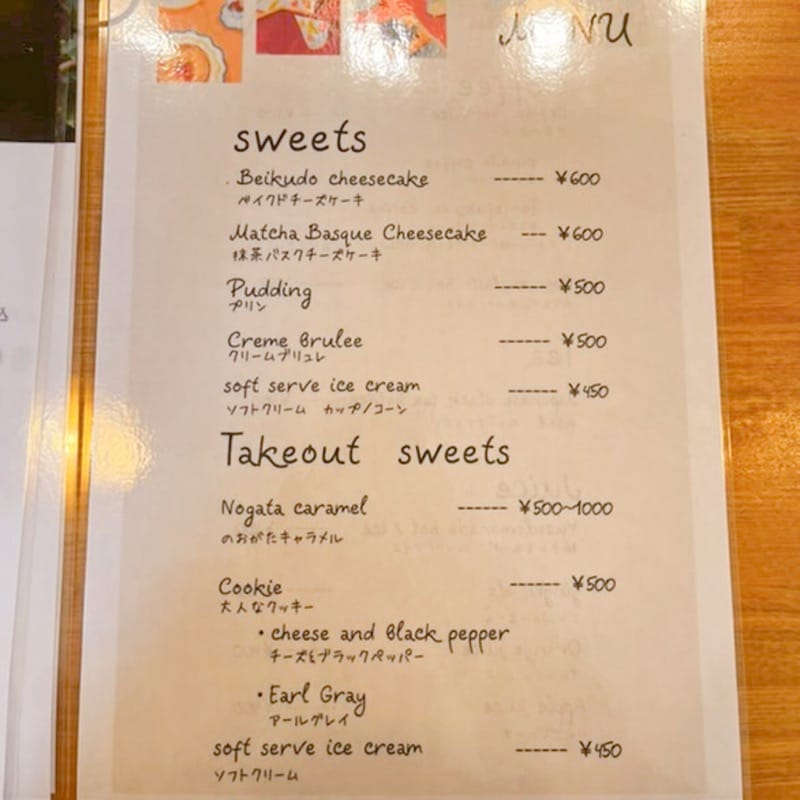 MENU
sweets
Beikudo cheesecake ------ ¥600
ベイクドチーズケーキ
Matcha Basque Cheesecake --- ¥600
抹茶バスクチーズケーキ
Pudding ------ ¥500
プリン
Creme Brulee ------ ¥500
クリームブリュレ
soft serve ice cream ------ ¥450
ソフトクリーム カップ/コーン
Takeout sweets
Nogata caramel ------ ¥500~1000
のおがたキャラメル
Cookie ------ ¥500
大人なクッキー
・cheese and Black pepper
チーズ&ブラックペッパー
・Earl Gray
アールグレイ
soft serve ice cream ------ ¥450
ソフトクリーム